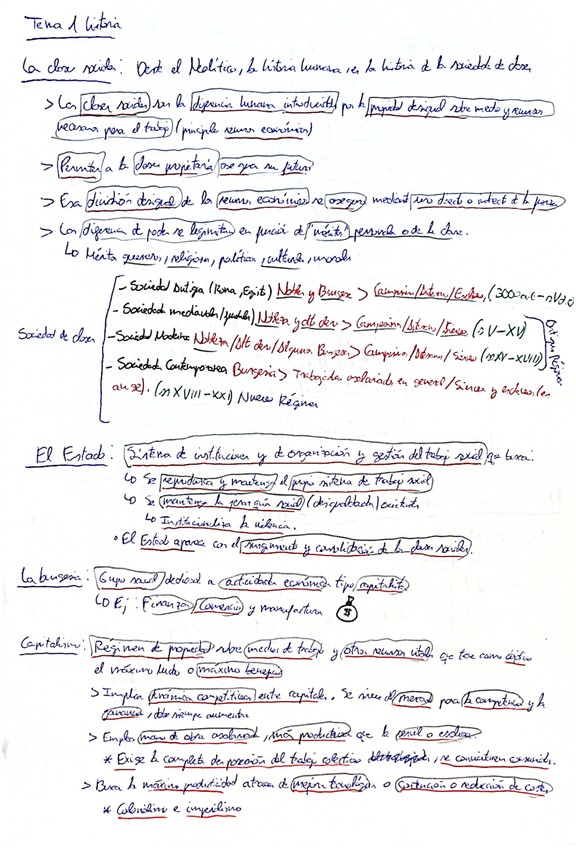 Tema 1 historia
La clase social: Desde el Neolítico, la historia humana, es la historia de la sociedad de clases
> Las clases sociales son la diferencia humana introducida por la propiedad desigual sobre medios y recursos
necesarios para el trabajo (principales recursos económicos)
> Permiten a la clase propietaria asegurar su futuro
> Esa división desigual de los recursos económicos se asegura mediante uso directo o indirecto de la fuerza
> Las diferencias de poder se legitiman en función del "mérito" personal o de la clase.
Mérito guerrero, religioso, político, cultural, moral
Sociedad de clases
- Sociedad Antigua (Roma, Egipto) Nobleza y Burgues > Campesino/Artesano/Esclavo, (3000 a.C -
- Sociedad medieval/feudal) Nobleza y alt clero > Campesino/Artesano/Siervos (s V-XV)
- Sociedad Moderna Nobleza/Alt clero/Alguna Burgues > Campesino/Artesano/Siervos (s XV-XVIII)
Antiguo Régimen
- Sociedad Contemporanea Burguesia > Trabajador asalariado en general/Siervos y esclavos (en
(s XVIII-XXI) Nuevo Régimen
El Estado: Sistema de instituciones y de organización y gestión del trabajo social que busca:
Se reproduzca y mantenga el propio sistema de trabajo social
Se mantenga la jerarquía social (desigualdades) existente
Institucionaliza la violencia.
• El Estado aparece con el surgimiento y consolidación de las clases sociales.
La burguesia: Grupo social dedicado a actividades económicas tipo capitalista
Ej: Finanzas, Comercio y manufactura $
Capitalismo: Régimen de propiedad sobre medios de trabajo y otros recursos útiles que tiene como objetivo
el máximo lucro o máximo beneficio
> Implica dinámica competitiva entre capitales. Se sirve del mercado para la competencia y la
ganancia, debe siempre aumentar
> Emplea mano de obra asalariada, más productiva que la servil o esclava
* Exige la completa desposesión del trabajo colectivo, se convierten en asalariados.
> Busca la máxima productividad a traves de mejoras tecnológicas o sustitución o reducción de costes
* Colonialismo e imperialismo